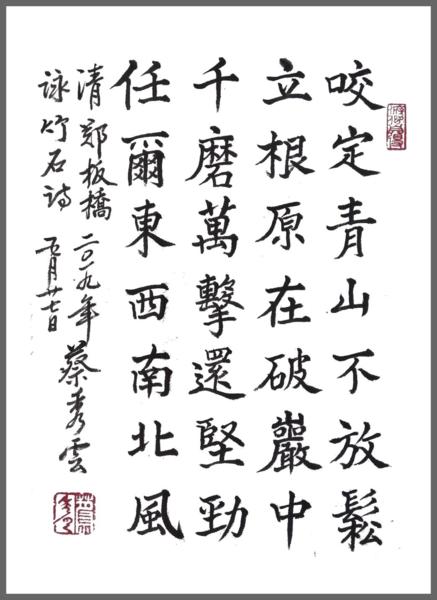 咬定青山不放鬆
立根原在破巖中
千磨萬擊還堅勁
任爾東西南北風
清鄭板橋詠竹石詩
二〇一九年五月廿七日
蔡秀雲